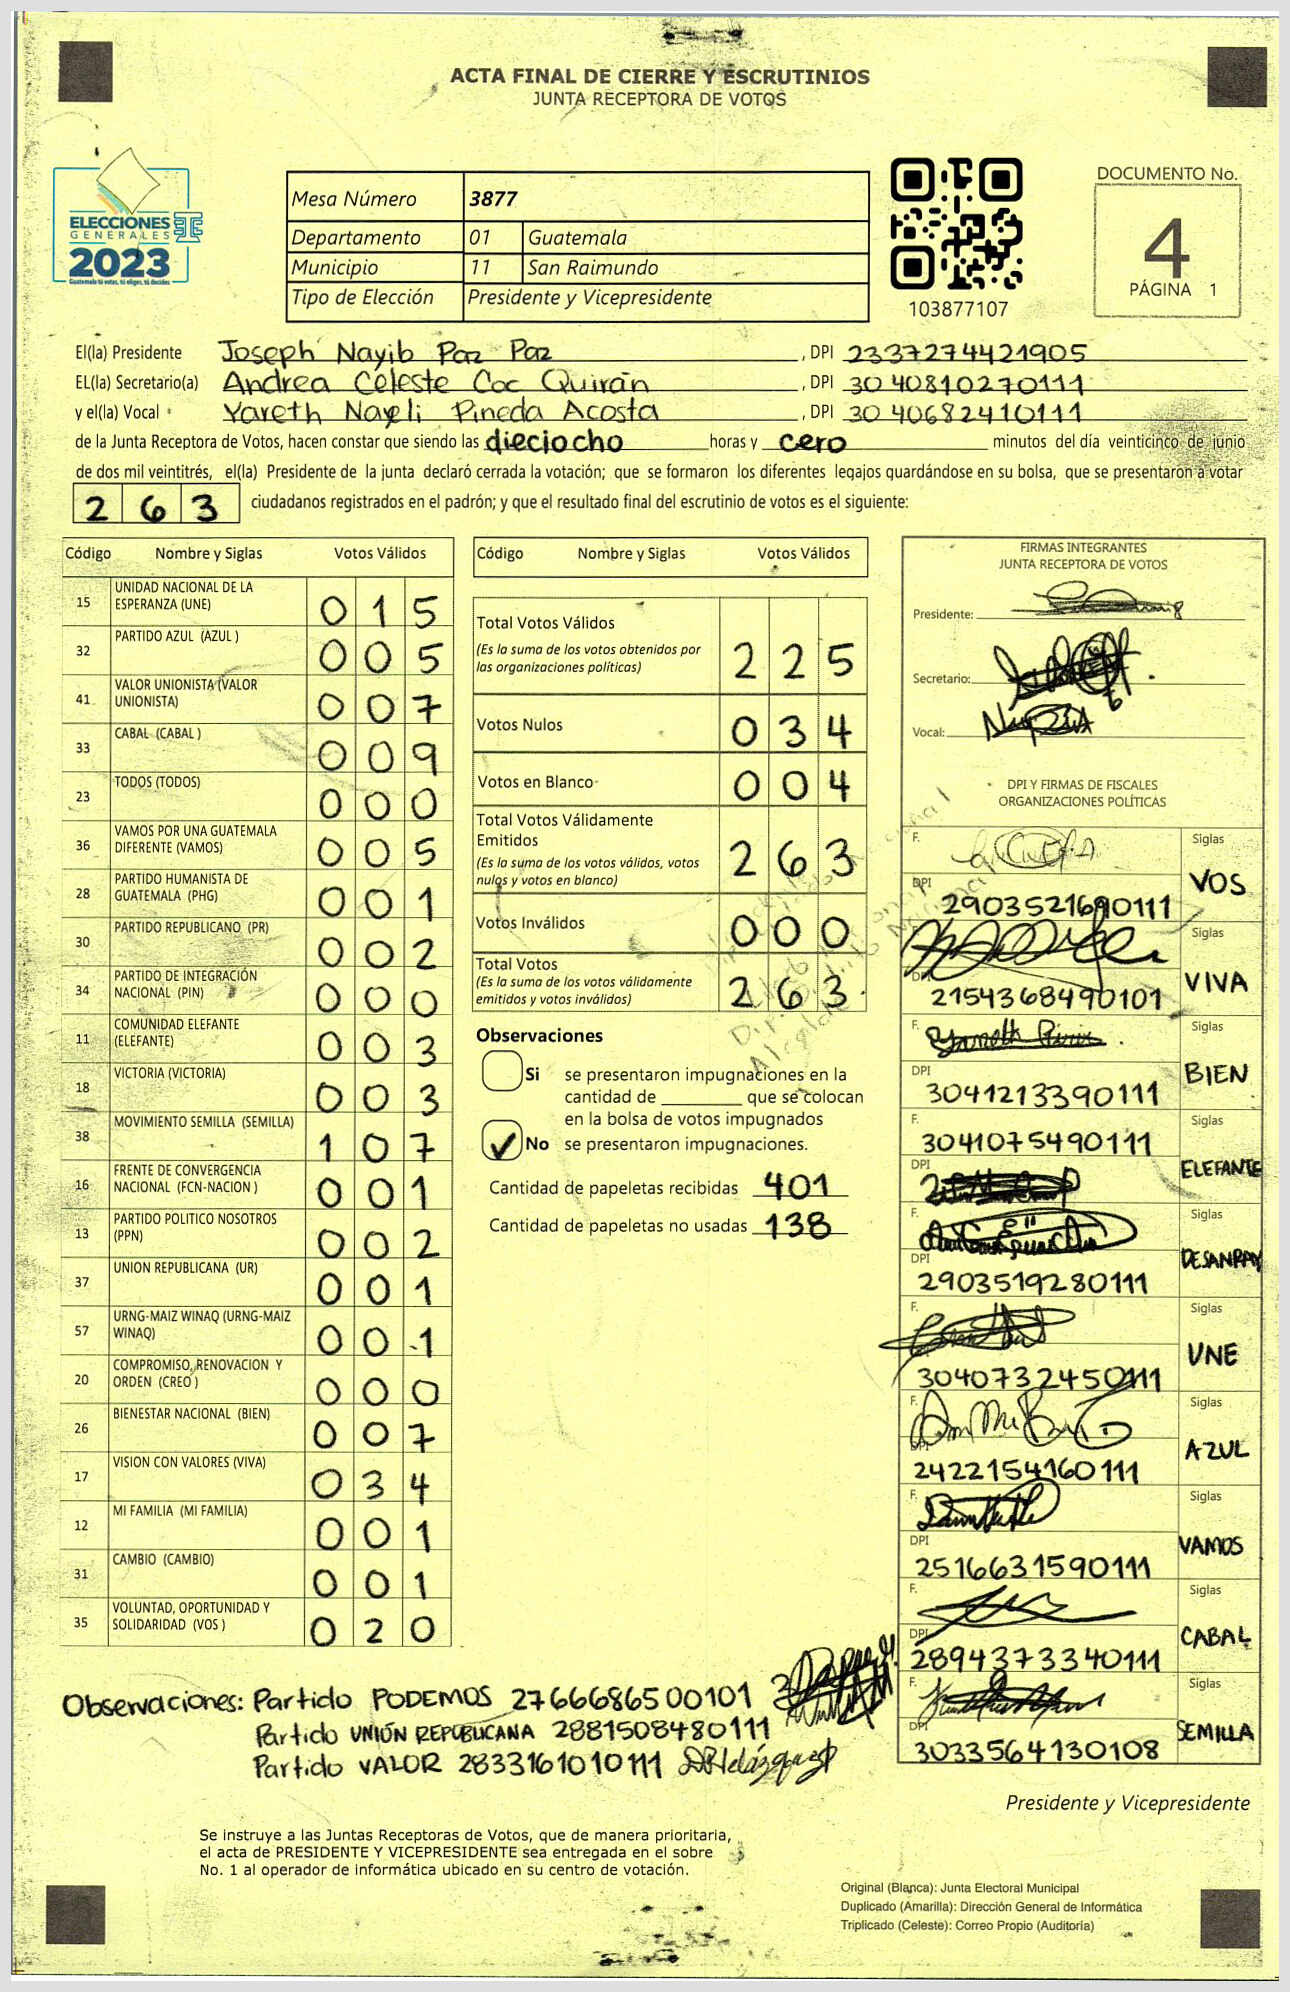 ACTA FINAL DE CIERRE Y ESCRUTINIOS
JUNTA RECEPTORA DE VOTOS
ELECCIONES
GENERALES
2023
Guatemala tú votas, tú eliges, tú decides
Mesa Número 3877
Departamento 01 Guatemala
Municipio 11 San Raimundo
Tipo de Elección Presidente y Vicepresidente
103877107
DOCUMENTO No.
4
PÁGINA 1
El(la) Presidente Joseph Nayib Paz Paz, DPI 2337274421905
EL(la) Secretario(a) Andrea Celeste Coc Quirán, DPI 3040810270111
y el(la) Vocal Yareth Nayeli Pineda Acosta, DPI 3040682410111
de la Junta Receptora de Votos, hacen constar que siendo las dieciocho horas y cero minutos del día veinticinco de junio
de dos mil veintitrés, el(la) Presidente de la junta declaró cerrada la votación; que se formaron los diferentes legajos quardándose en su bolsa, que se presentaron a votar
263 ciudadanos registrados en el padrón; y que el resultado final del escrutinio de votos es el siguiente:
Código Nombre y Siglas Votos Válidos
15 UNIDAD NACIONAL DE LA ESPERANZA (UNE) 015
32 PARTIDO AZUL (AZUL ) 005
41 VALOR UNIONISTA (VALOR UNIONISTA) 007
33 CABAL (CABAL ) 009
23 TODOS (TODOS) 000
36 VAMOS POR UNA GUATEMALA DIFERENTE (VAMOS) 005
28 PARTIDO HUMANISTA DE GUATEMALA (PHG) 001
30 PARTIDO REPUBLICANO (PR) 002
34 PARTIDO DE INTEGRACIÓN NACIONAL (PIN) 000
11 COMUNIDAD ELEFANTE (ELEFANTE) 003
18 VICTORIA (VICTORIA) 003
38 MOVIMIENTO SEMILLA (SEMILLA) 107
16 FRENTE DE CONVERGENCIA NACIONAL (FCN-NACION ) 001
13 PARTIDO POLITICO NOSOTROS (PPN) 002
37 UNION REPUBLICANA (UR) 001
57 URNG-MAIZ WINAQ (URNG-MAIZ WINAQ) 001
20 COMPROMISO, RENOVACION Y ORDEN (CREO ) 000
26 BIENESTAR NACIONAL (BIEN) 007
17 VISION CON VALORES (VIVA) 034
12 MI FAMILIA (MI FAMILIA) 001
31 CAMBIO (CAMBIO) 001
35 VOLUNTAD, OPORTUNIDAD Y SOLIDARIDAD (VOS ) 020
Código Nombre y Siglas Votos Válidos
Total Votos Válidos 225
(Es la suma de los votos obtenidos por
las organizaciones políticas)
Votos Nulos 034
Votos en Blanco 004
Total Votos Válidamente
Emitidos 263
(Es la suma de los votos válidos, votos
nulos y votos en blanco)
Votos Inválidos 000
Total Votos 263
(Es la suma de los votos válidamente
emitidos y votos inválidos)
Observaciones
Si se presentaron impugnaciones en la
cantidad de ________ que se colocan
en la bolsa de votos impugnados
✓ No se presentaron impugnaciones.
Cantidad de papeletas recibidas 401
Cantidad de papeletas no usadas 138
FIRMAS INTEGRANTES
JUNTA RECEPTORA DE VOTOS
Presidente:
Secretario:
Vocal:
DPI Y FIRMAS DE FISCALES
ORGANIZACIONES POLÍTICAS
F. Siglas
DPI 2903521690111 VOS
F. Siglas
DPI 2154368490101 VIVA
F. Siglas
DPI 3041213390111 BIEN
F. 3041075490111 Siglas
DPI ELEFANTE
F. Siglas
DPI 2903519280111
F. Siglas
3040732450111 UNE
F. Siglas
DPI 2422154160111 AZUL
F. Siglas
DPI 2516631590111 VAMOS
F. Siglas
DPI 2894373340111 CABAL
F. Siglas
DPI 3033564130108 SEMILLA
Observaciones: Partido PODEMOS 2766686500101
Partido UNIÓN REPUBLICANA 2881508480111
Partido VALOR 2833161010111
Presidente y Vicepresidente
Se instruye a las Juntas Receptoras de Votos, que de manera prioritaria,
el acta de PRESIDENTE Y VICEPRESIDENTE sea entregada en el sobre
No. 1 al operador de informática ubicado en su centro de votación.
Original (Blanca): Junta Electoral Municipal
Duplicado (Amarilla): Dirección General de Informática
Triplicado (Celeste): Correo Propio (Auditoría)